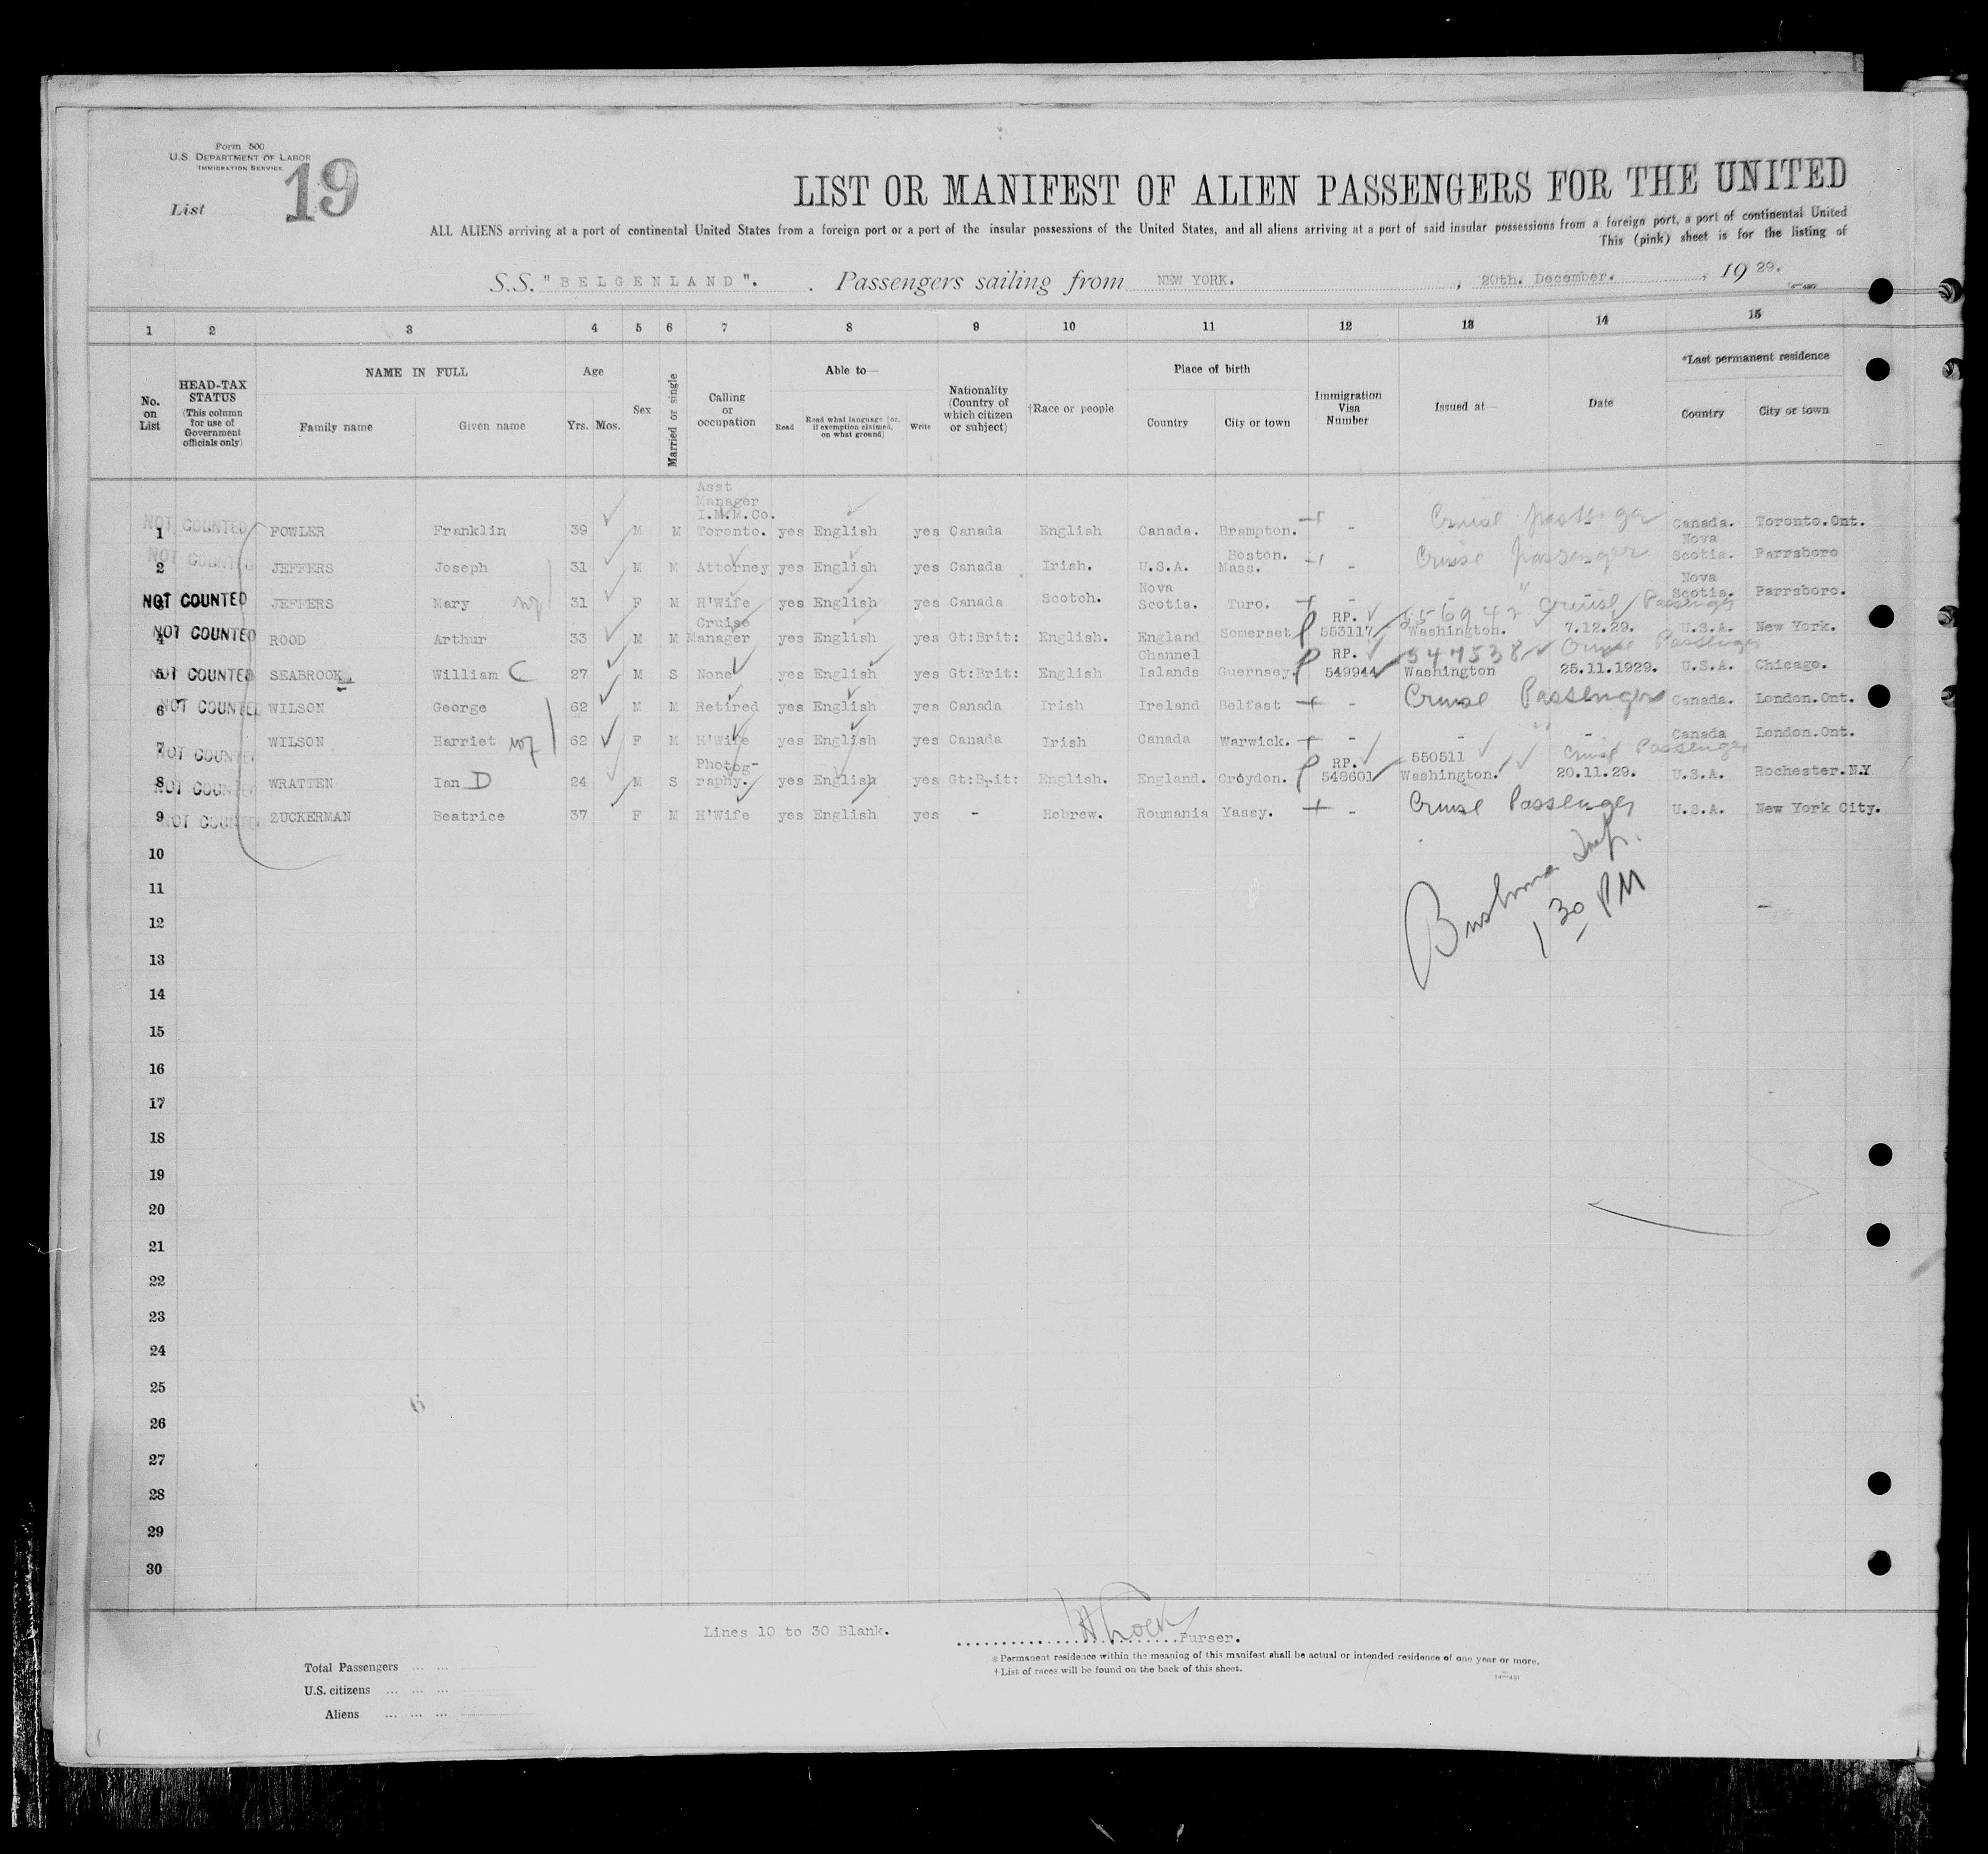 Form 500
U.S. DEPARTMENT OF LABOR
IMMIGRATION SERVICE
List 19
LIST OR MANIFEST OF ALIEN PASSENGERS FOR THE UNITED
ALL ALIENS arriving at a port of continental United States from a foreign port or a port of the insular possessions of the United States, and all aliens arriving at a port of said insular possessions from a foreign port, a port of continental United
This (pink) sheet is for the listing of
S.S. "BELGENLAND". Passengers sailing from NEW YORK. , 20th. December. , 19 29.
1 2 3 4 5 6 7 8 9 10 11 12 13 14 15
No. on List
HEAD-TAX STATUS (This column for use of Government officials only)
NAME IN FULL Family name Given name
Age Yrs. Mos.
Sex
Married or single
Calling or occupation
Able to— Read Read what language (or, if exemption claimed, on what ground) Write
Nationality (Country of which citizen or subject)
†Race or people
Place of birth Country City or town
Immigration Visa Number
Issued at—
Date
*Last permanent residence Country City or town
1 NOT COUNTED FOWLER Franklin 39 M M Asst Manager I.M.M.Co. Toronto. yes English yes Canada English Canada. Brampton. - Cruise passenger Canada. Toronto.Ont.
2 NOT COUNTED JEFFERS Joseph 31 M M Attorney yes English yes Canada Irish. U.S.A. Boston. Mass. - Cruise passenger Nova Scotia. Parrsboro
3 NOT COUNTED JEFFERS Mary wf 31 F M H'Wife yes English yes Canada Scotch. Nova Scotia. Turo. - " Nova Scotia. Parrsboro.
4 NOT COUNTED ROOD Arthur 33 M M Cruise Manager yes English yes Gt:Brit: English. England Somerset RP. 553117 556942 Washington. Cruise Passenger 7.12.29. U.S.A. New York.
5 NOT COUNTED SEABROOK William C 27 M S None yes English yes Gt:Brit: English Channel Islands Guernsey. RP. 549944 547538 Washington Cruise Passenger 25.11.1929. U.S.A. Chicago.
6 NOT COUNTED WILSON George 62 M M Retired yes English yes Canada Irish Ireland Belfast - Cruise Passenger Canada. London.Ont.
7 NOT COUNTED WILSON Harriet wf 62 F M H'Wife yes English yes Canada Irish Canada Warwick. - - " - Canada London.Ont.
8 NOT COUNTED WRATTEN Ian D 24 M S Photog-raphy. yes English yes Gt:Brit: English. England. Croydon. RP. 548601 550511 Washington. Cruise Passenger 20.11.29. U.S.A. Rochester.N.Y
9 NOT COUNTED ZUCKERMAN Beatrice 37 F M H'Wife yes English yes - Hebrew. Roumania Yassy. - Cruise Passenger U.S.A. New York City.
10
11
12
13
14
15
16
17
18
19
20
21
22
23
24
25
26
27
28
29
30
Insp.
1 30 PM
Lines 10 to 30 Blank.
Purser.
Total Passengers ... ...
U.S. citizens ... ... ...
Aliens ... ... ...
* Permanent residence within the meaning of this manifest shall be actual or intended residence of one year or more.
† List of races will be found on the back of this sheet.